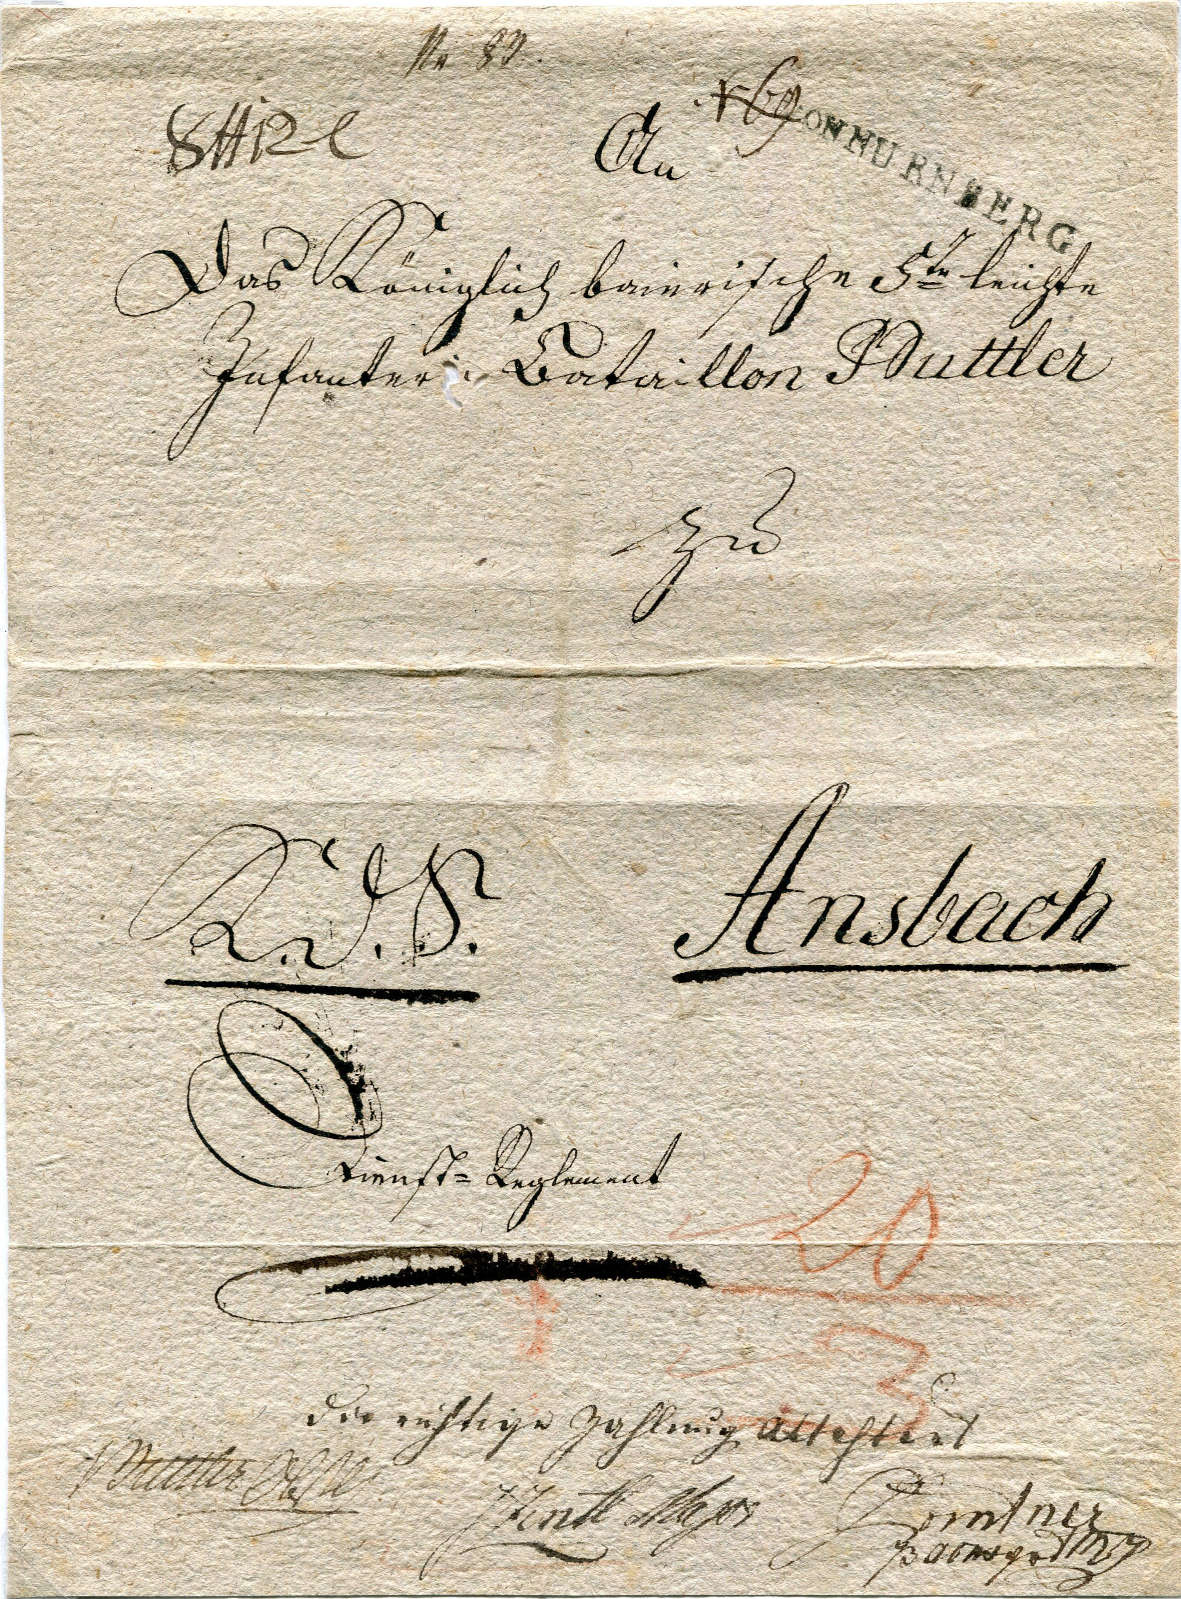 Nr 80.
An
VON NURNBERG
Das Königlich baierische 5te leichte
Infanterie Bataillon Buttler
zu
K. D. S.
Ansbach
Dienst=Reglement
20
3
die richtige Zahlung Attestirt
Buttler
Major